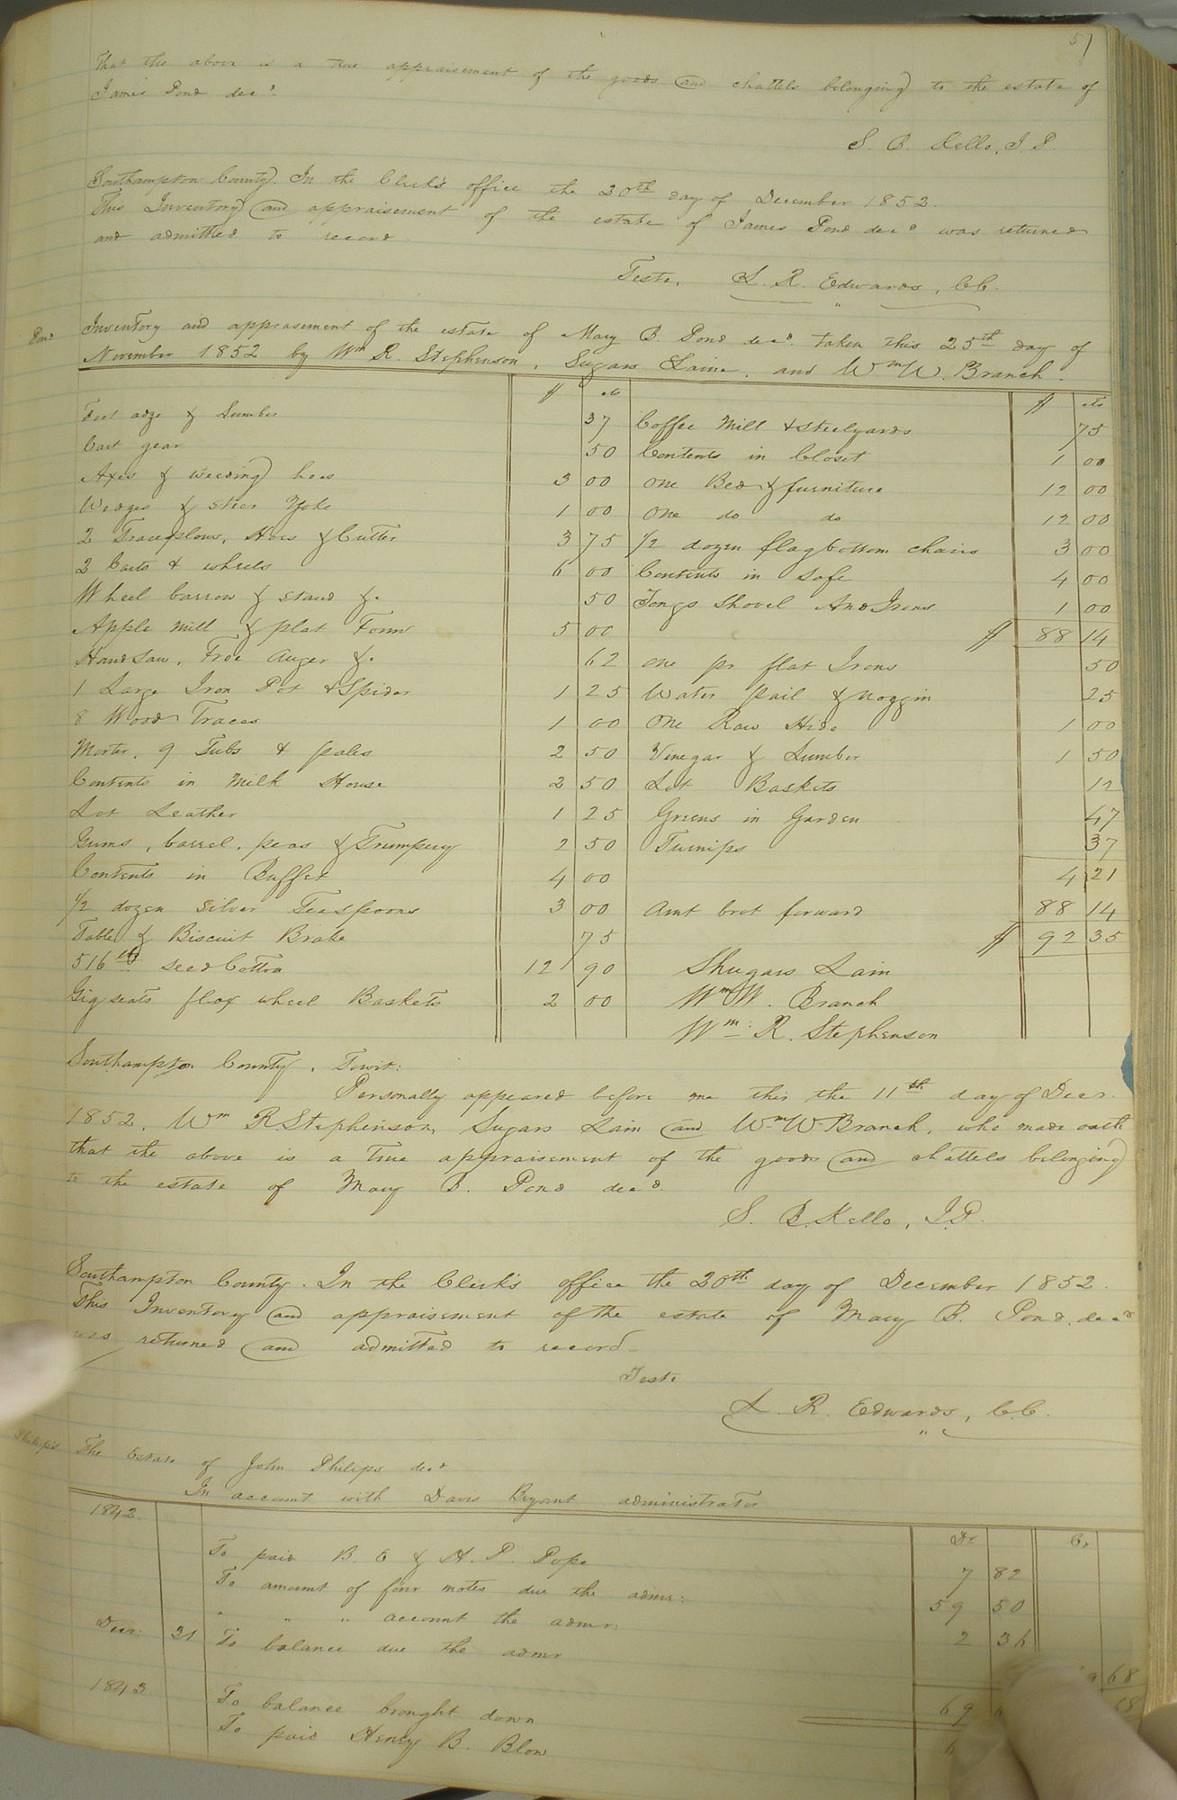 51
that the above is a true appraisement of the goods and chattels belonging to the estate of
James Pond decd.
S. B. Kello, J. P.
Southampton County. In the Clerk's office the 20th day of December 1852.
This Inventory and appraisement of the estate of James Pond decd was returned
and admitted to record
Teste, L. R. Edwards, C.C.
Pond
Inventory and apprasement of the estate of Mary B. Pond decd. taken this 25th day of
November 1852 by Wm R. Stephenson, Sugars Laine, and Wm W. Branch.
$ cts $ cts
Foot adze & Lumber 37 Coffee Mill & steelyards 75
Cart gear 50 Contents in Closet 1 00
Axes & weeding hoes 3 00 One Bed & furniture 12 00
Wedges & steer Yoke 1 00 One do do 12 00
2 Traceplows, Hoes & Cutter 3 75 1/2 dozen flagbottom chairs 3 00
2 Carts & wheels 6 00 Contents in Safe 4 00
Wheel barrow & stand &. 50 Tongs Shovel And Irons 1 00
Apple Mill & plat Form 5 00 $ 88 14
Handsaw, Froe Auger &. 62 one pr flat Irons 50
1 Large Iron Pot & Spider 1 25 Water pail & noggin 25
8 Wood Traces 1 00 One Raw Hide 1 00
Morter, 9 Tubs & pales 2 50 Vinegar & Lumber 1 50
Contents in Milk House 2 50 Lot Baskets 12
Lot Leather 1 25 Greens in Garden 47
Gums, barrel, peas & Trumpery 2 50 Turnips 37
Contents in Buffet 4 00 4 21
1/2 dozen Silver Teaspoons 3 00 Amt brot forward 88 14
Table & Biscuit Brake 75 $ 92 35
516 lb seed Cotton 12 90 Shugars Lain
Gig seats flax wheel Baskets 2 00 Wm W. Branch
Wm. R. Stephenson
Southampton County, Towit:
Personally appeared before me this the 11th day of Decr.
1852, Wm R. Stephenson, Sugars Lain and Wm W Branch, who made oath
that the above is a true appraisement of the goods and chattels belonging
to the estate of Mary B. Pond decd.
S. B. Kello, J.P.
Southampton County. In the Clerk's office the 20th day of December 1852.
This Inventory and appraisement of the estate of Mary B. Pond, decd
was returned and admitted to record
Teste
L. R. Edwards, C.C.
Philips
The Estate of John Philips decd
In account with Davis Bryant administrator
1842. Dr Cr
To paid B. E & H. P. Pope 7 82
To amount of four notes due the admr: 59 50
" " " account the admr: 2 36
Decr: 31 To balance due the admr 68
1843 To balance brought down 69 68
To paid Henry B. Blow